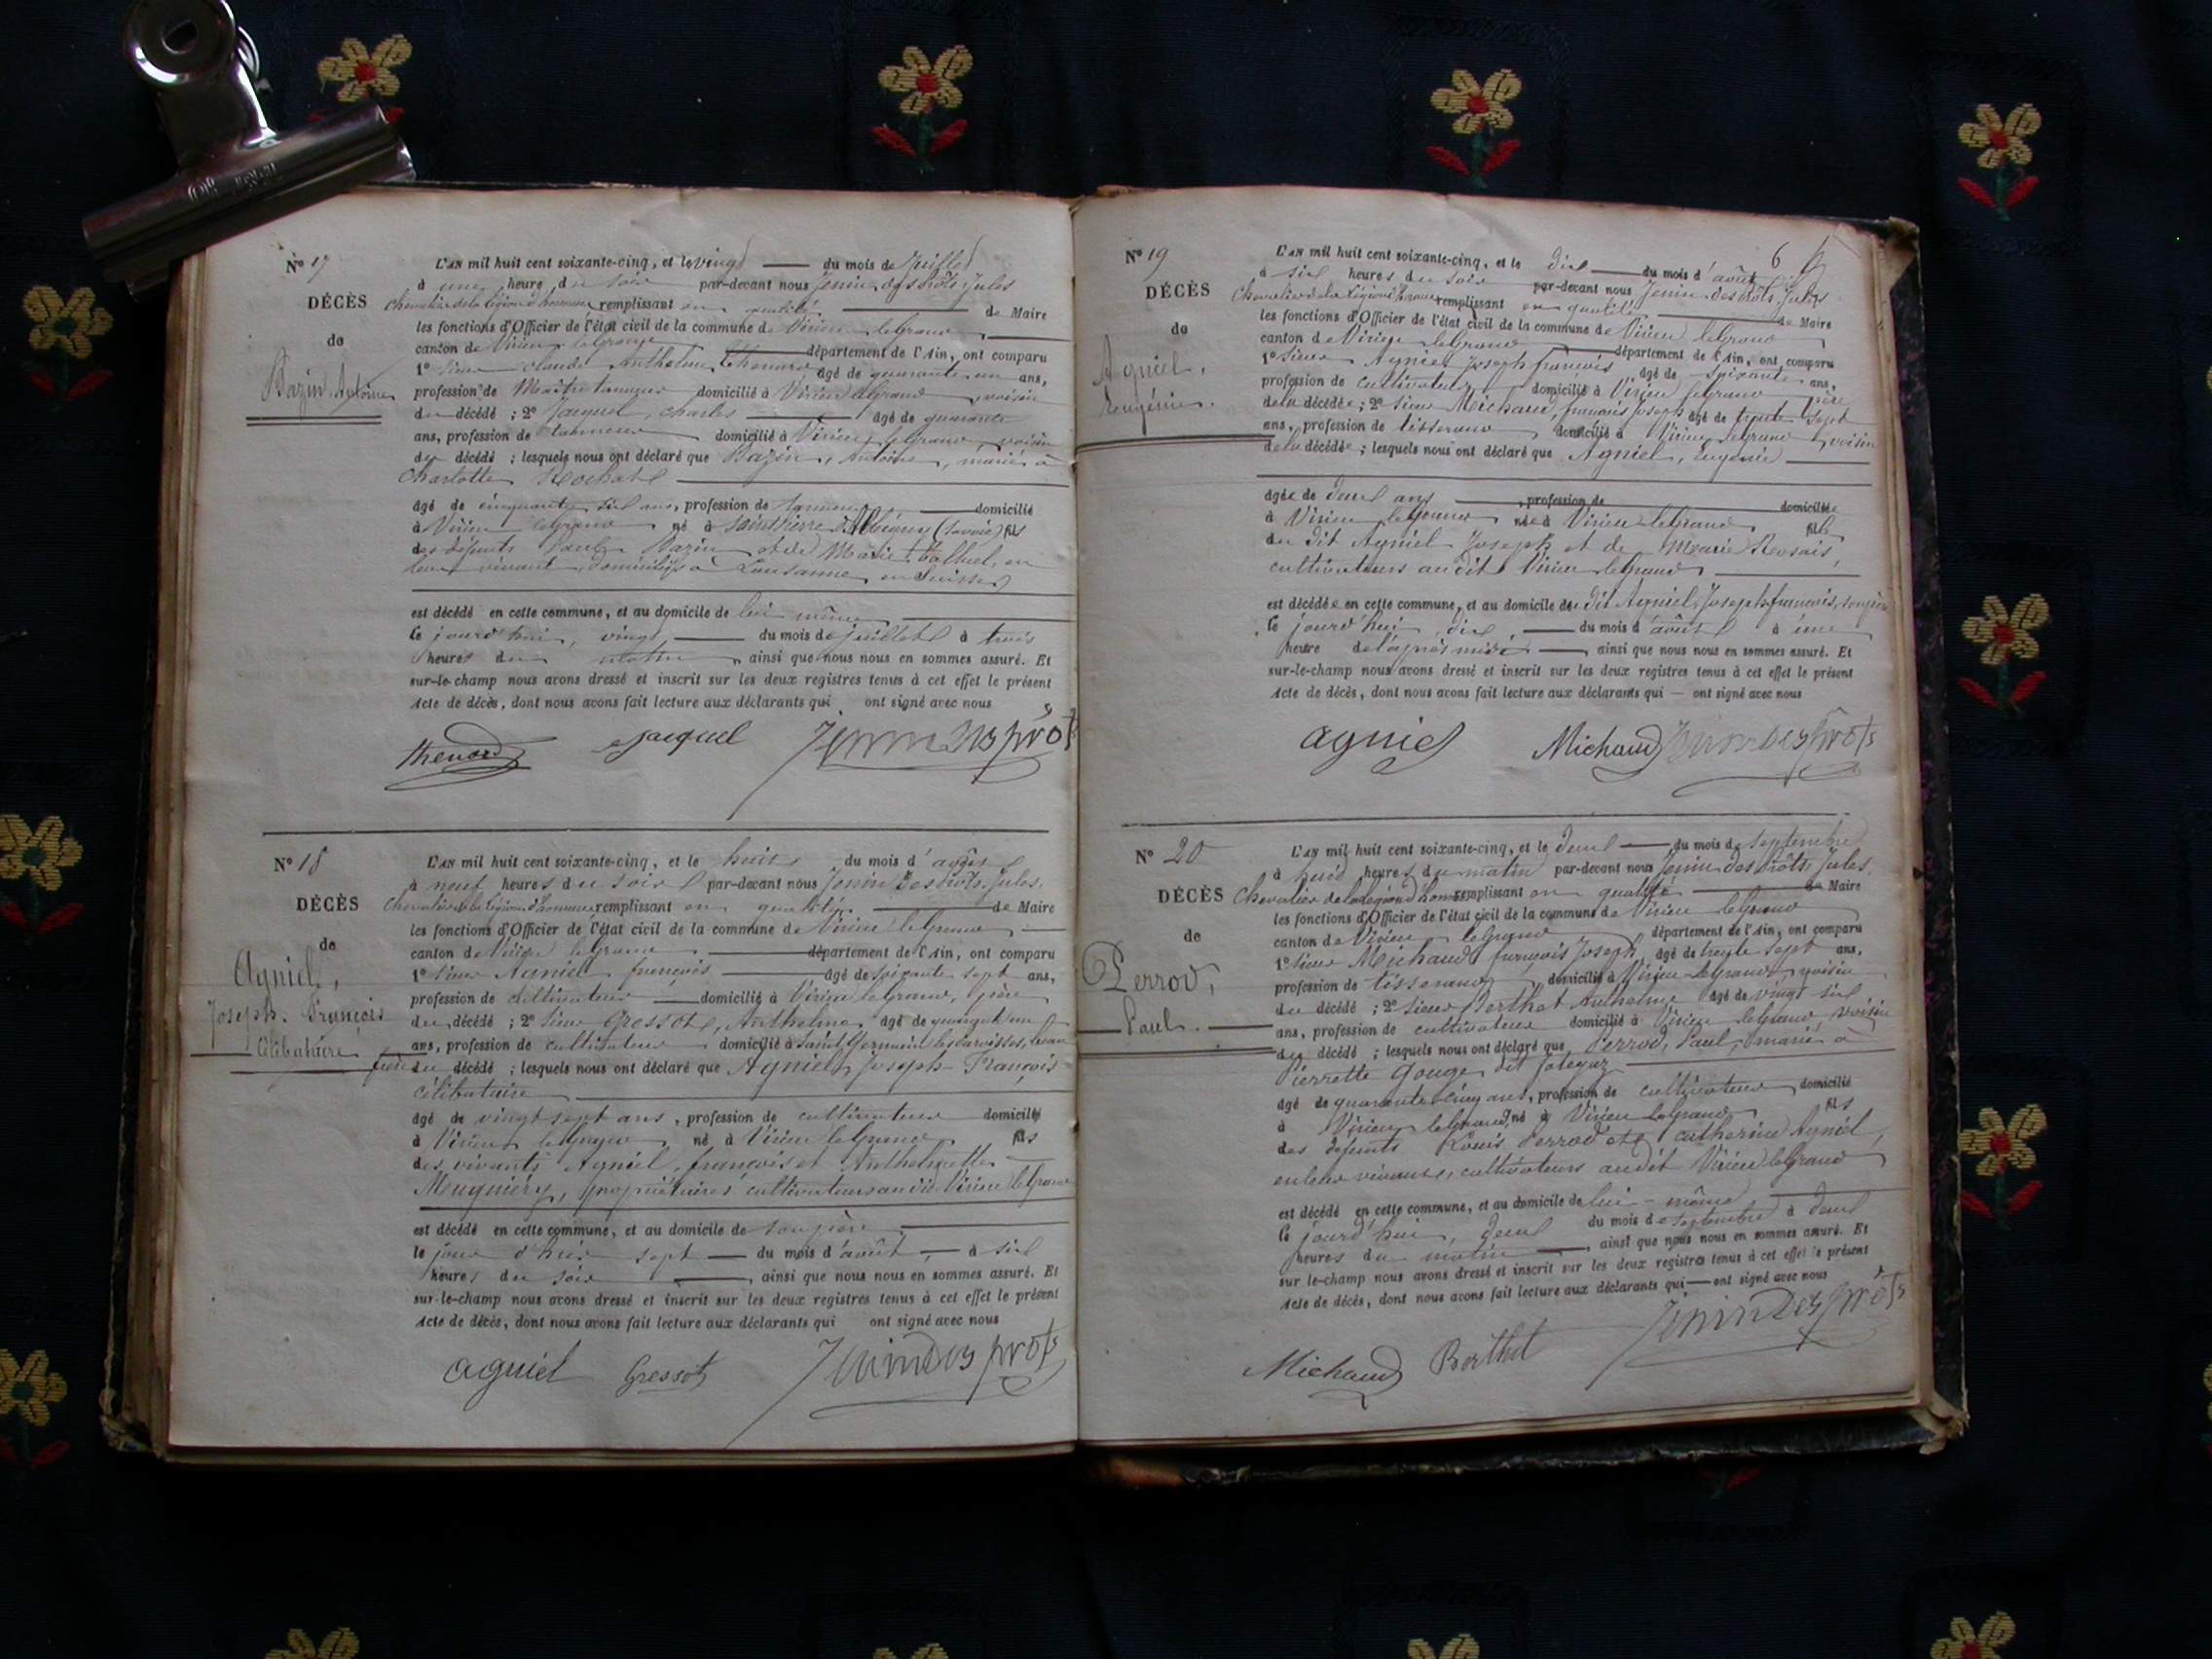 N° 17
L'AN mil huit cent soixante-cinq, et le vingt du mois de Juillet
à une heure du soir par-devant nous Jenin desprôts, Jules
DÉCÈS
Chevalier de la Légion d'honneur remplissant en qualité de Maire
les fonctions d'Officier de l'état civil de la commune de Virieu leGrand
de
canton de Virieu leGrand département de l'Ain, ont comparu
1° Sieur Claude Anthelme Thenard âgé de quarante un ans,
Bazin Antoine
profession de Maître tanneur domicilié à Virieu leGrand voisin
du décédé ; 2° Jacquel, Charles âgé de quarante
ans, profession de tanneur domicilié à Virieu leGrand voisin
du décédé ; lesquels nous ont déclaré que Bazin, Antoine, marié à
Charlotte Rochat
âgé de cinquante six ans, profession de tanneur domicilié
à Virieu leGrand né à Saint Pierre d'Albigny (Savoie) fils
des défunts Bazin et de Marie en
leur vivant, domiciliés à Lausanne en Suisse
est décédé en cette commune, et au domicile de lui même
le jourd'hui, vingt du mois de juillet à trois
heures du matin, ainsi que nous nous en sommes assuré. Et
sur-le-champ nous avons dressé et inscrit sur les deux registres tenus à cet effet le présent
Acte de décès, dont nous avons fait lecture aux déclarants qui ont signé avec nous
thenard jacquel Jenin Desprôts
N° 18
L'AN mil huit cent soixante-cinq, et le huit du mois d'août
à neuf heures du soir par-devant nous Jenin Desprôts, Jules,
DÉCÈS
Chevalier de la Légion d'honneur remplissant en qualité de Maire
les fonctions d'Officier de l'état civil de la commune de Virieu leGrand
de
canton de Virieu leGrand département de l'Ain, ont comparu
Agniel,
1° Sieur Agniel françois âgé de soixante sept ans,
Joseph-François
profession de cultivateur domicilié à Virieu leGrand, père
du décédé ; 2° Sieur Gressot, Anthelme âgé de quarante un
célibataire
ans, profession de cultivateur domicilié à Saint Germain les Paroisses, beau
frère du décédé ; lesquels nous ont déclaré que Agniel, Joseph-François
célibataire
âgé de vingt sept ans, profession de cultivateur domicilié
à Virieu leGrand, né à Virieu leGrand fils
des vivants Agniel, françois et Anthelmette
Meugniéry, propriétaires cultivateurs au dit Virieu leGrand
est décédé en cette commune, et au domicile de son père
le jour d'hier sept du mois d'août à six
heures du soir, ainsi que nous nous en sommes assuré. Et
sur-le-champ nous avons dressé et inscrit sur les deux registres tenus à cet effet le présent
Acte de décès, dont nous avons fait lecture aux déclarants qui ont signé avec nous
agniel Gressot Jenin Desprôts
6
N° 19
L'AN mil huit cent soixante-cinq, et le dix du mois d'août
à six heures du soir par-devant nous Jenin-desprôts, Jules
DÉCÈS
Chevalier de la Légion d'honneur remplissant en qualité de Maire
les fonctions d'Officier de l'état civil de la commune de Virieu leGrand
de
canton de Virieu leGrand département de l'Ain, ont comparu
Agniel,
1° Sieur Agniel Joseph françois âgé de soixante ans,
profession de cultivateur domicilié à Virieu leGrand père
Eugénie.
de la décédée ; 2° Sieur Michaud, françois Joseph âgé de trente sept
ans, profession de tisserand, domicilié à Virieu leGrand, voisin
de la décédée ; lesquels nous ont déclaré que Agniel, Eugénie
âgée de deux ans, profession de domiciliée
à Virieu leGrand née à Virieu-leGrand fille
du dit Agniel Joseph et de Marie
cultivateurs au dit Virieu leGrand
est décédée en cette commune, et au domicile du dit Agniel, Joseph françois, son père
le jourd'hui, dix du mois d'août à une
heure de l'après midi, ainsi que nous nous en sommes assuré. Et
sur-le-champ nous avons dressé et inscrit sur les deux registres tenus à cet effet le présent
Acte de décès, dont nous avons fait lecture aux déclarants qui — ont signé avec nous
agniel Michaud Jenin Desprôts
N° 20
L'AN mil huit cent soixante-cinq, et le deux du mois de septembre
à huit heures du matin par-devant nous Jenin desprôts, Jules,
DÉCÈS
Chevalier de la Légion d'honneur remplissant en qualité de Maire
les fonctions d'Officier de l'état civil de la commune de Virieu leGrand
de
canton de Virieu leGrand département de l'Ain, ont comparu
1° Sieur Michaud françois Joseph, âgé de trente sept ans,
Perrod,
profession de tisserand, domicilié à Virieu leGrand, voisin
du décédé ; 2° Sieur Berthet Anthelme âgé de vingt six
Paul.
ans, profession de cultivateur domicilié à Virieu leGrand, voisin
du décédé ; lesquels nous ont déclaré que Perrod, Paul, marié à
Pierrette Gouge dit
âgé de quarante-cinq ans, profession de cultivateur domicilié
à Virieu leGrand, né à Virieu leGrand fils
des défunts Louis Perrod et Catherine Agniel,
en leur vivant, cultivateurs au dit Virieu leGrand
est décédé en cette commune, et au domicile de lui-même
le jourd'hui, deux du mois de septembre à deux
heures du matin, ainsi que nous nous en sommes assuré. Et
sur-le-champ nous avons dressé et inscrit sur les deux registres tenus à cet effet le présent
Acte de décès, dont nous avons fait lecture aux déclarants qui — ont signé avec nous
Michaud Berthet Jenin Desprôts